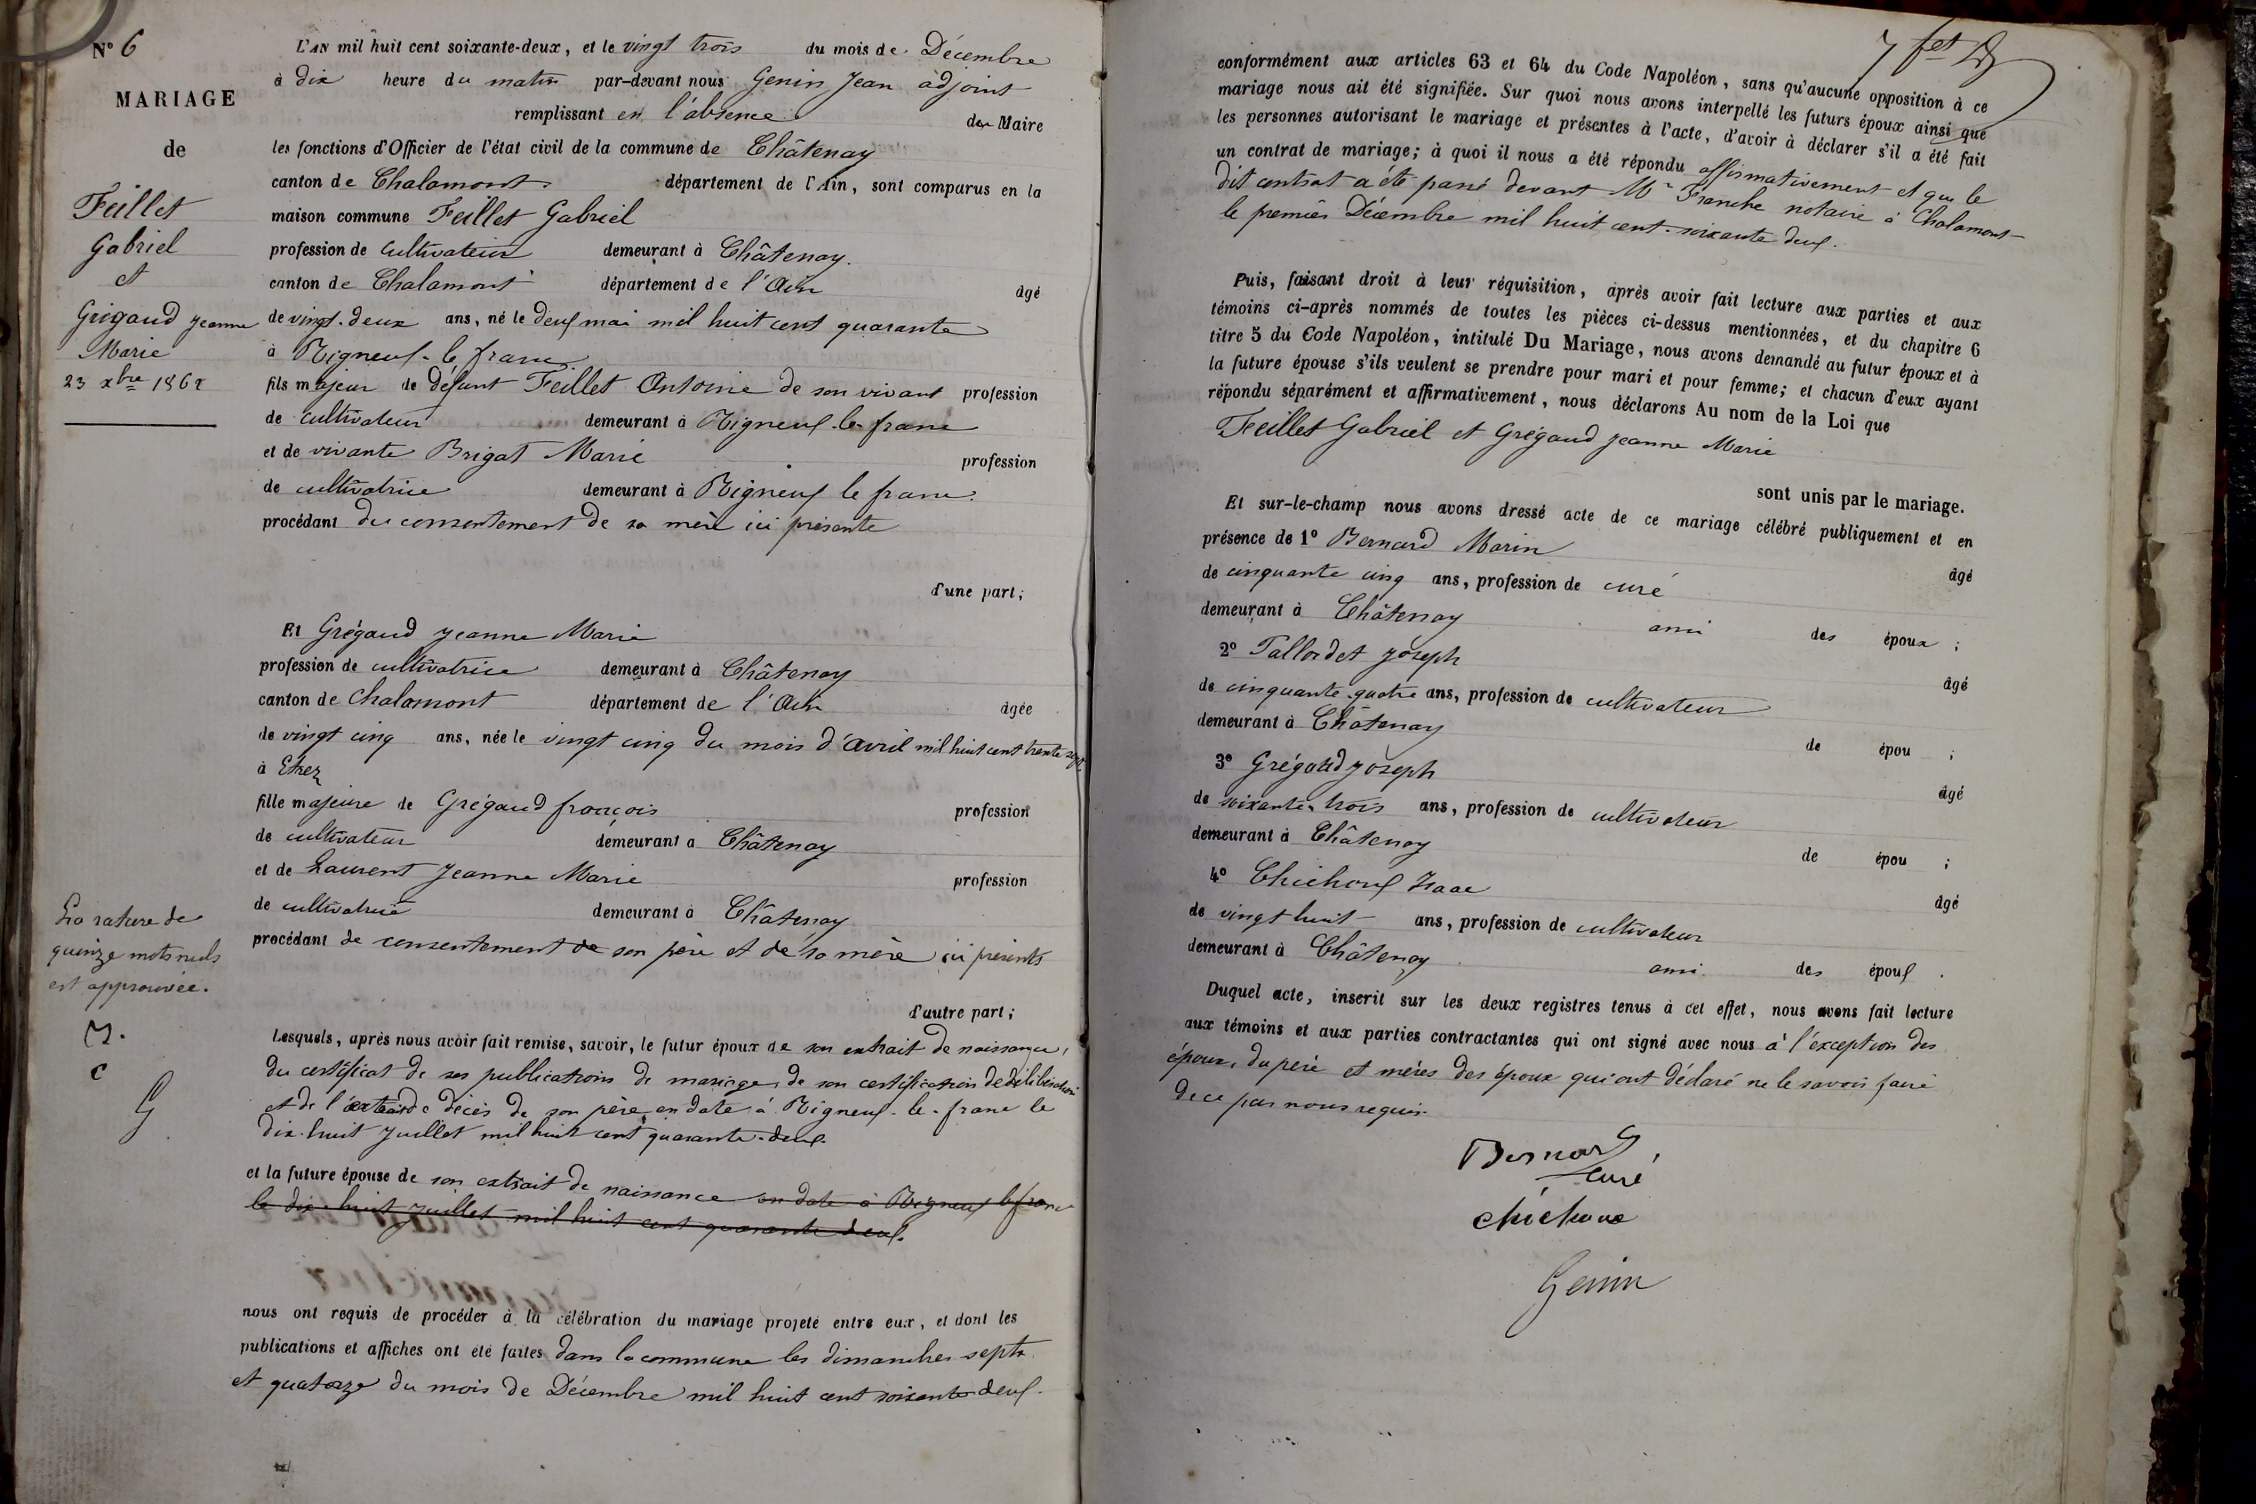 N° 6
MARIAGE
de
Feillet
Gabriel
et
Grégaud Jeanne
Marie
23 xbre 1862
L'AN mil huit cent soixante-deux, et le vingt trois du mois de Décembre
à dix heure du matin par-devant nous Genin Jean adjoint
remplissant en l'absence du Maire
les fonctions d'Officier de l'état civil de la commune de Châtenay
canton de Chalamont département de l'Ain, sont comparus en la
maison commune Feillet Gabriel
profession de cultivateur demeurant à Châtenay.
canton de Chalamont département de l'Ain âgé
de vingt-deux ans, né le deux mai mil huit cent quarante
à Rigneux-le-franc
fils majeur de défunt Feillet Antoine de son vivant profession
de cultivateur demeurant à Rigneux-le-franc
et de vivante Brigat Marie profession
de cultivatrice demeurant à Rigneux le franc.
procédant du consentement de sa mère ici présente
d'une part;
Et Grégaud Jeanne Marie
profession de cultivatrice demeurant à Châtenay
canton de Chalamont département de l'Ain âgée
de vingt cinq ans, née le vingt cinq du mois d'avril mil huit cent trente sept
à
fille majeure de Grégaud françois profession
de cultivateur demeurant a Châtenay
et de Laurent Jeanne Marie profession
de cultivatrice demeurant à Châtenay
procédant de consentement de son père et de sa mère ici présents
d'autre part;
La rature de
quinze mots nuls
est approuvée.
C
G
Lesquels, après nous avoir fait remise, savoir, le futur époux de son extrait de naissance,
du certificat de ses publications de mariage, de son certification de délibération
et de l'extrait de décès de son père en date à Rigneux-le-franc le
dix-huit Juillet mil huit cent quarante-deux.
et la future épouse de son extrait de naissance en date à Rigneux le franc
le dix-huit Juillet mil huit cent quarante deux.
nous ont requis de procéder à la célébration du mariage projeté entre eux, et dont les
publications et affiches ont été faites dans la commune les dimanches sept
et quatorze du mois de Décembre mil huit cent soixante deux.
conformément aux articles 63 et 64 du Code Napoléon, sans qu'aucune opposition à ce
mariage nous ait été signifiée. Sur quoi nous avons interpellé les futurs époux ainsi que
les personnes autorisant le mariage et présentes à l'acte, d'avoir à déclarer s'il a été fait
un contrat de mariage; à quoi il nous a été répondu affirmativement et que le
dit contrat a été passé devant Me Franche notaire à Chalamont
le premier Décembre mil huit cent soixante deux.
Puis, faisant droit à leur réquisition, après avoir fait lecture aux parties et aux
témoins ci-après nommés de toutes les pièces ci-dessus mentionnées, et du chapitre 6
titre 5 du Code Napoléon, intitulé Du Mariage, nous avons demandé au futur époux et à
la future épouse s'ils veulent se prendre pour mari et pour femme; et chacun d'eux ayant
répondu séparément et affirmativement, nous déclarons Au nom de la Loi que
Feillet Gabriel et Grégaud Jeanne Marie
sont unis par le mariage.
Et sur-le-champ nous avons dressé acte de ce mariage célébré publiquement et en
présence de 1° Bernard Marin âgé
de cinquante cinq ans, profession de curé
demeurant à Châtenay ami des époux ;
2° Tallordet Joseph âgé
de cinquante quatre ans, profession de cultivateur
demeurant à Châtenay de épou ;
3° Grégaud Joseph âgé
de soixante-trois ans, profession de cultivateur
demeurant à Châtenay de épou ;
4° Chichoux Isaac âgé
de vingt huit ans, profession de cultivateur
demeurant à Châtenay ami des époux .
Duquel acte, inscrit sur les deux registres tenus à cet effet, nous avons fait lecture
aux témoins et aux parties contractantes qui ont signé avec nous à l'exception des
époux, du père et mères des époux qui ont déclaré ne le savoir faire
de ce par nous requis.
Bernard
curé
chichoux
Genin